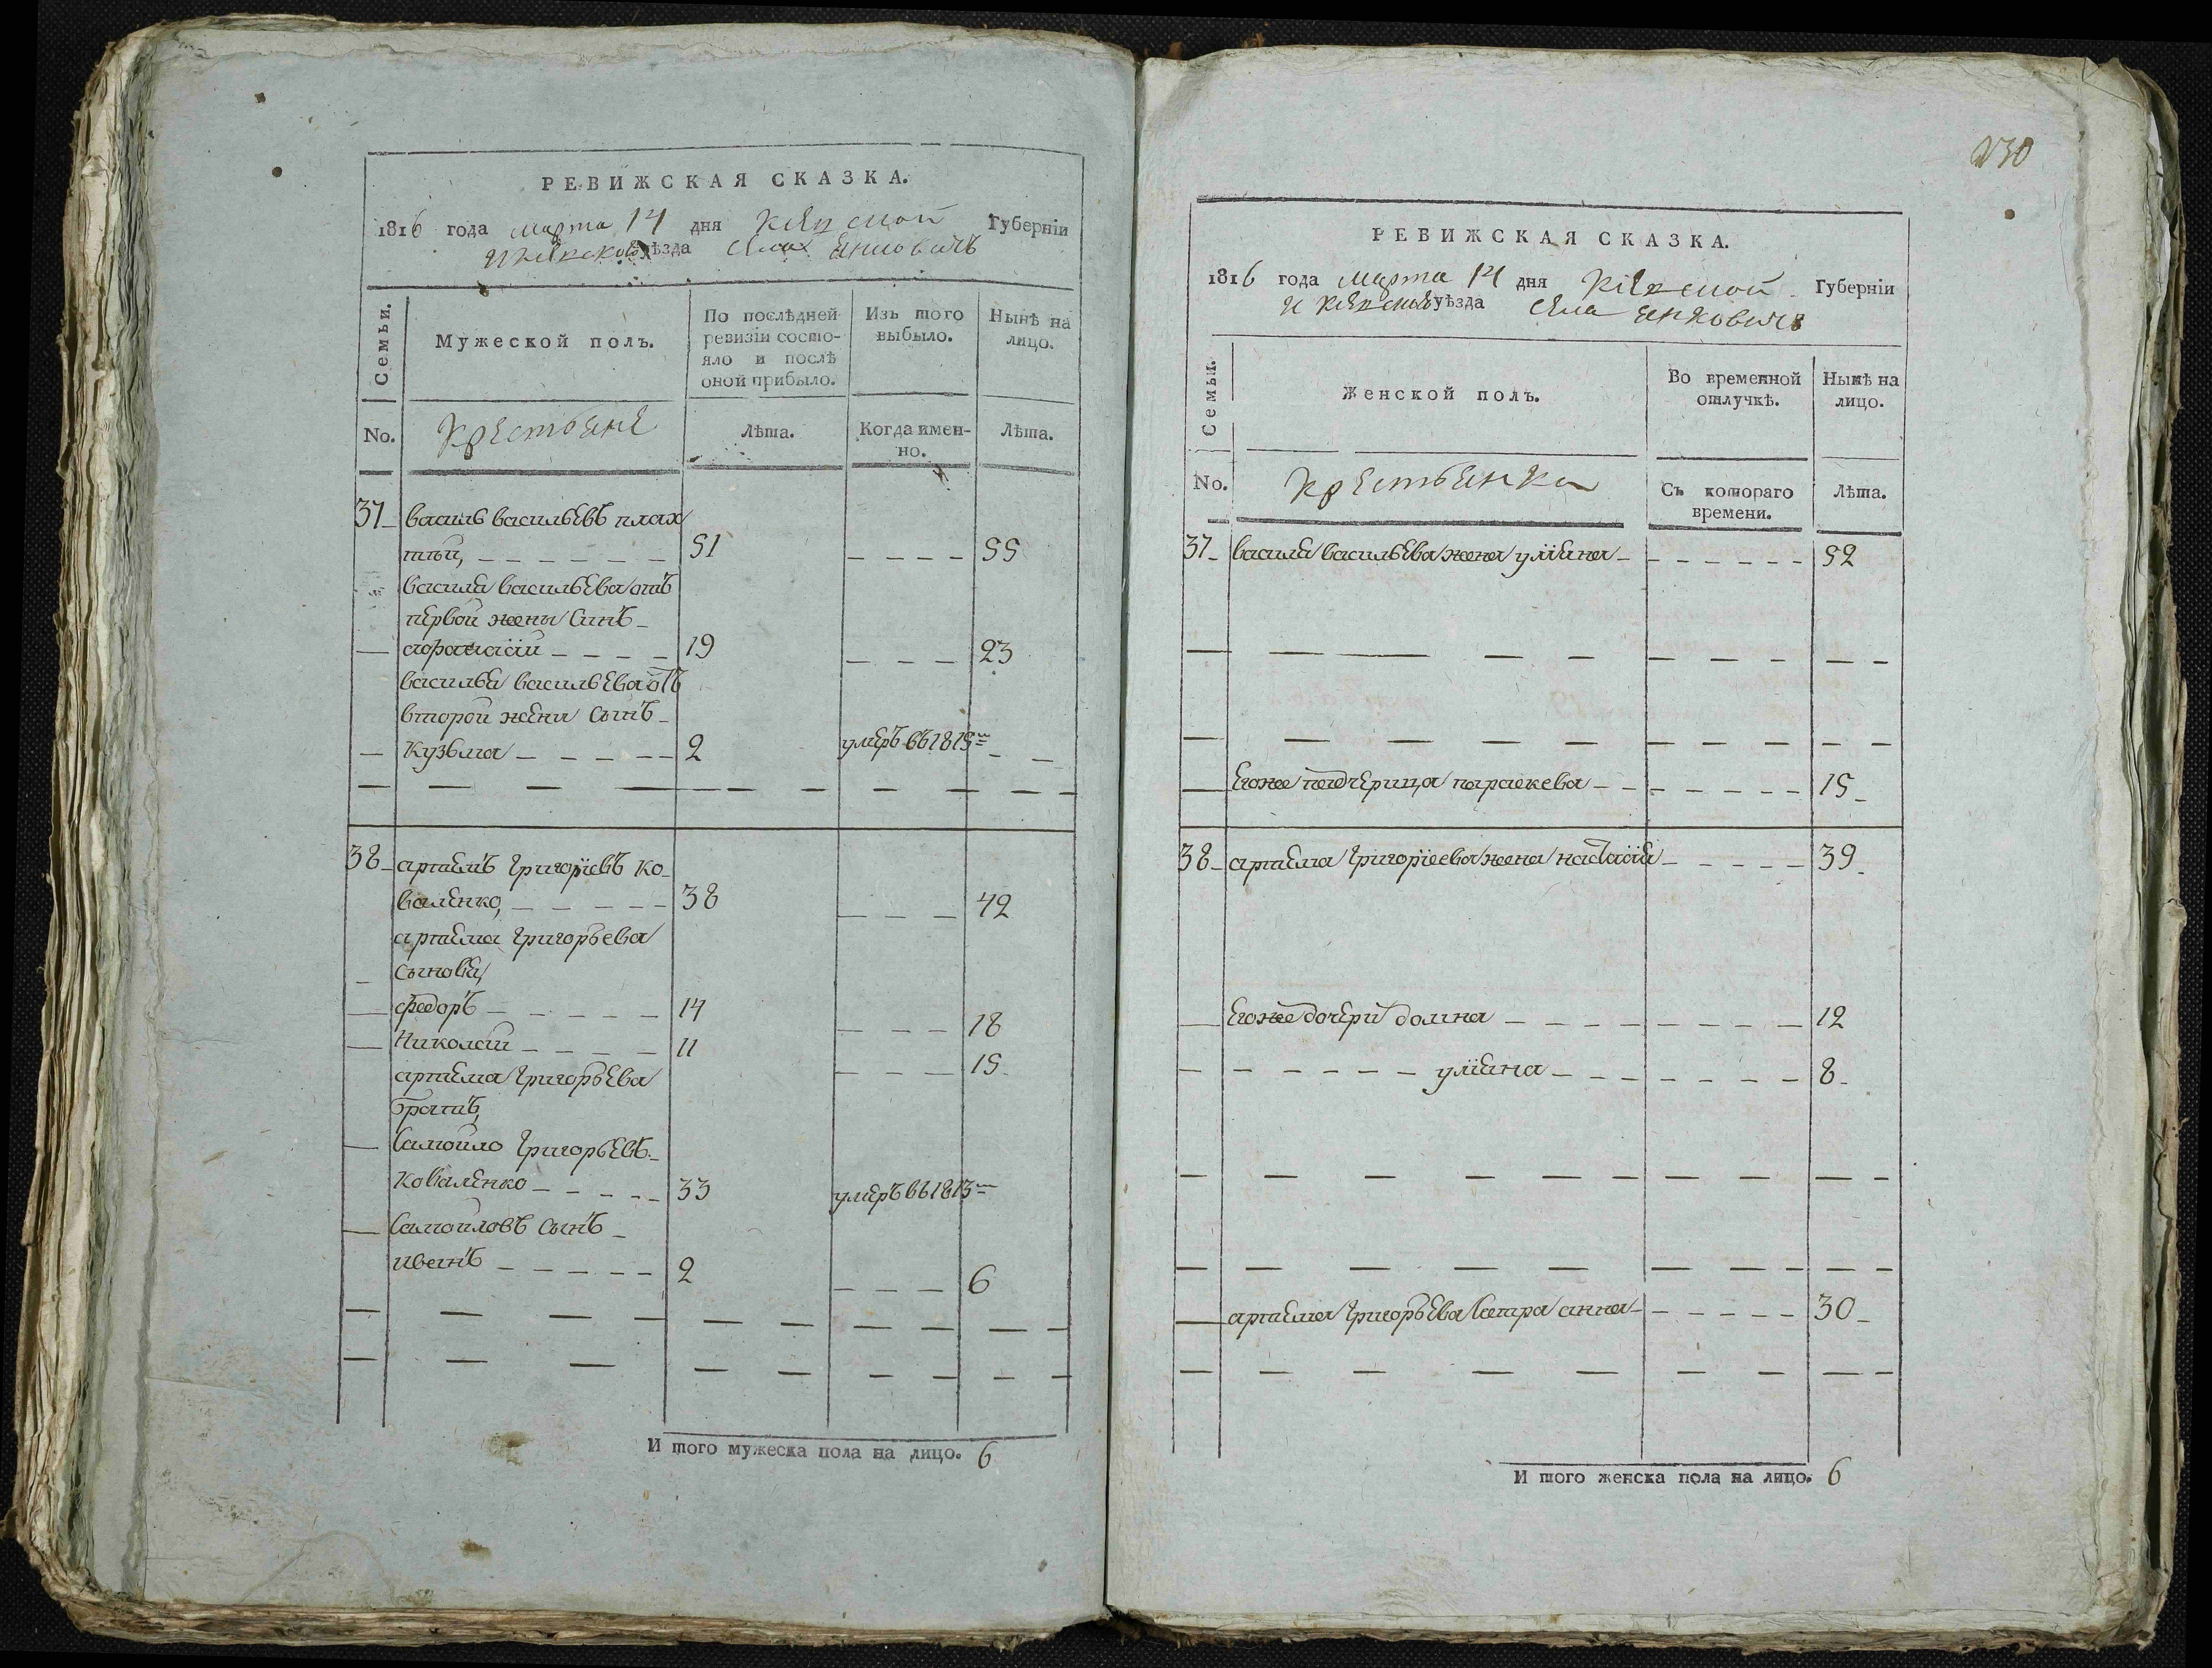 РЕВИЖСКАЯ СКАЗКА.
1816 года марта 14 дня Кіевской Губерніи
и Кіевского уѣзда села Янковичъ
Семьи.
Мужеской полъ.
По послѣдней ревизіи состо-
яло и послѣ оной прибыло.
Изъ того выбыло.
Нынѣ на лицо.
No.
Крестьяне
Лѣта.
Когда имен-
но.
Лѣта.
37 василь васильевъ плах
тій, 51 55
василя васильева отъ
первой жены Синъ
афанасій 19 23
василья васильева отъ
второй жени сынъ
Кузьма 2 умеръ въ 1815м
38 артемъ Григоріевъ Ко
валенко, 38 42
артема Григорьева
сыновья,
федоръ 14 18
Николай 11 15
артема Григорьева
братъ,
Самойло Григорьевъ
Коваленко 33 умеръ въ 1813м
Самойловъ сынъ
иванъ 2 6
И того мужеска пола на лицо. 6
230
РЕВИЖСКАЯ СКАЗКА.
1816 года марта 14 дня Кіевской Губерніи
и Кіевского уѣзда села Янковичъ
Семьи.
Женской полъ.
Во временной отлучкѣ.
Нынѣ на лицо.
No.
Крестьянки
Съ котораго времени.
Лѣта.
37 василя васильева жена уліяна 52
Егоже падчерица параскева 15
38 артема Григоріева жена настасія 39
Егоже дочери домна 12
уліяна 8
артема Григорьева Сестра анна 30
И того женска пола на лицо. 6